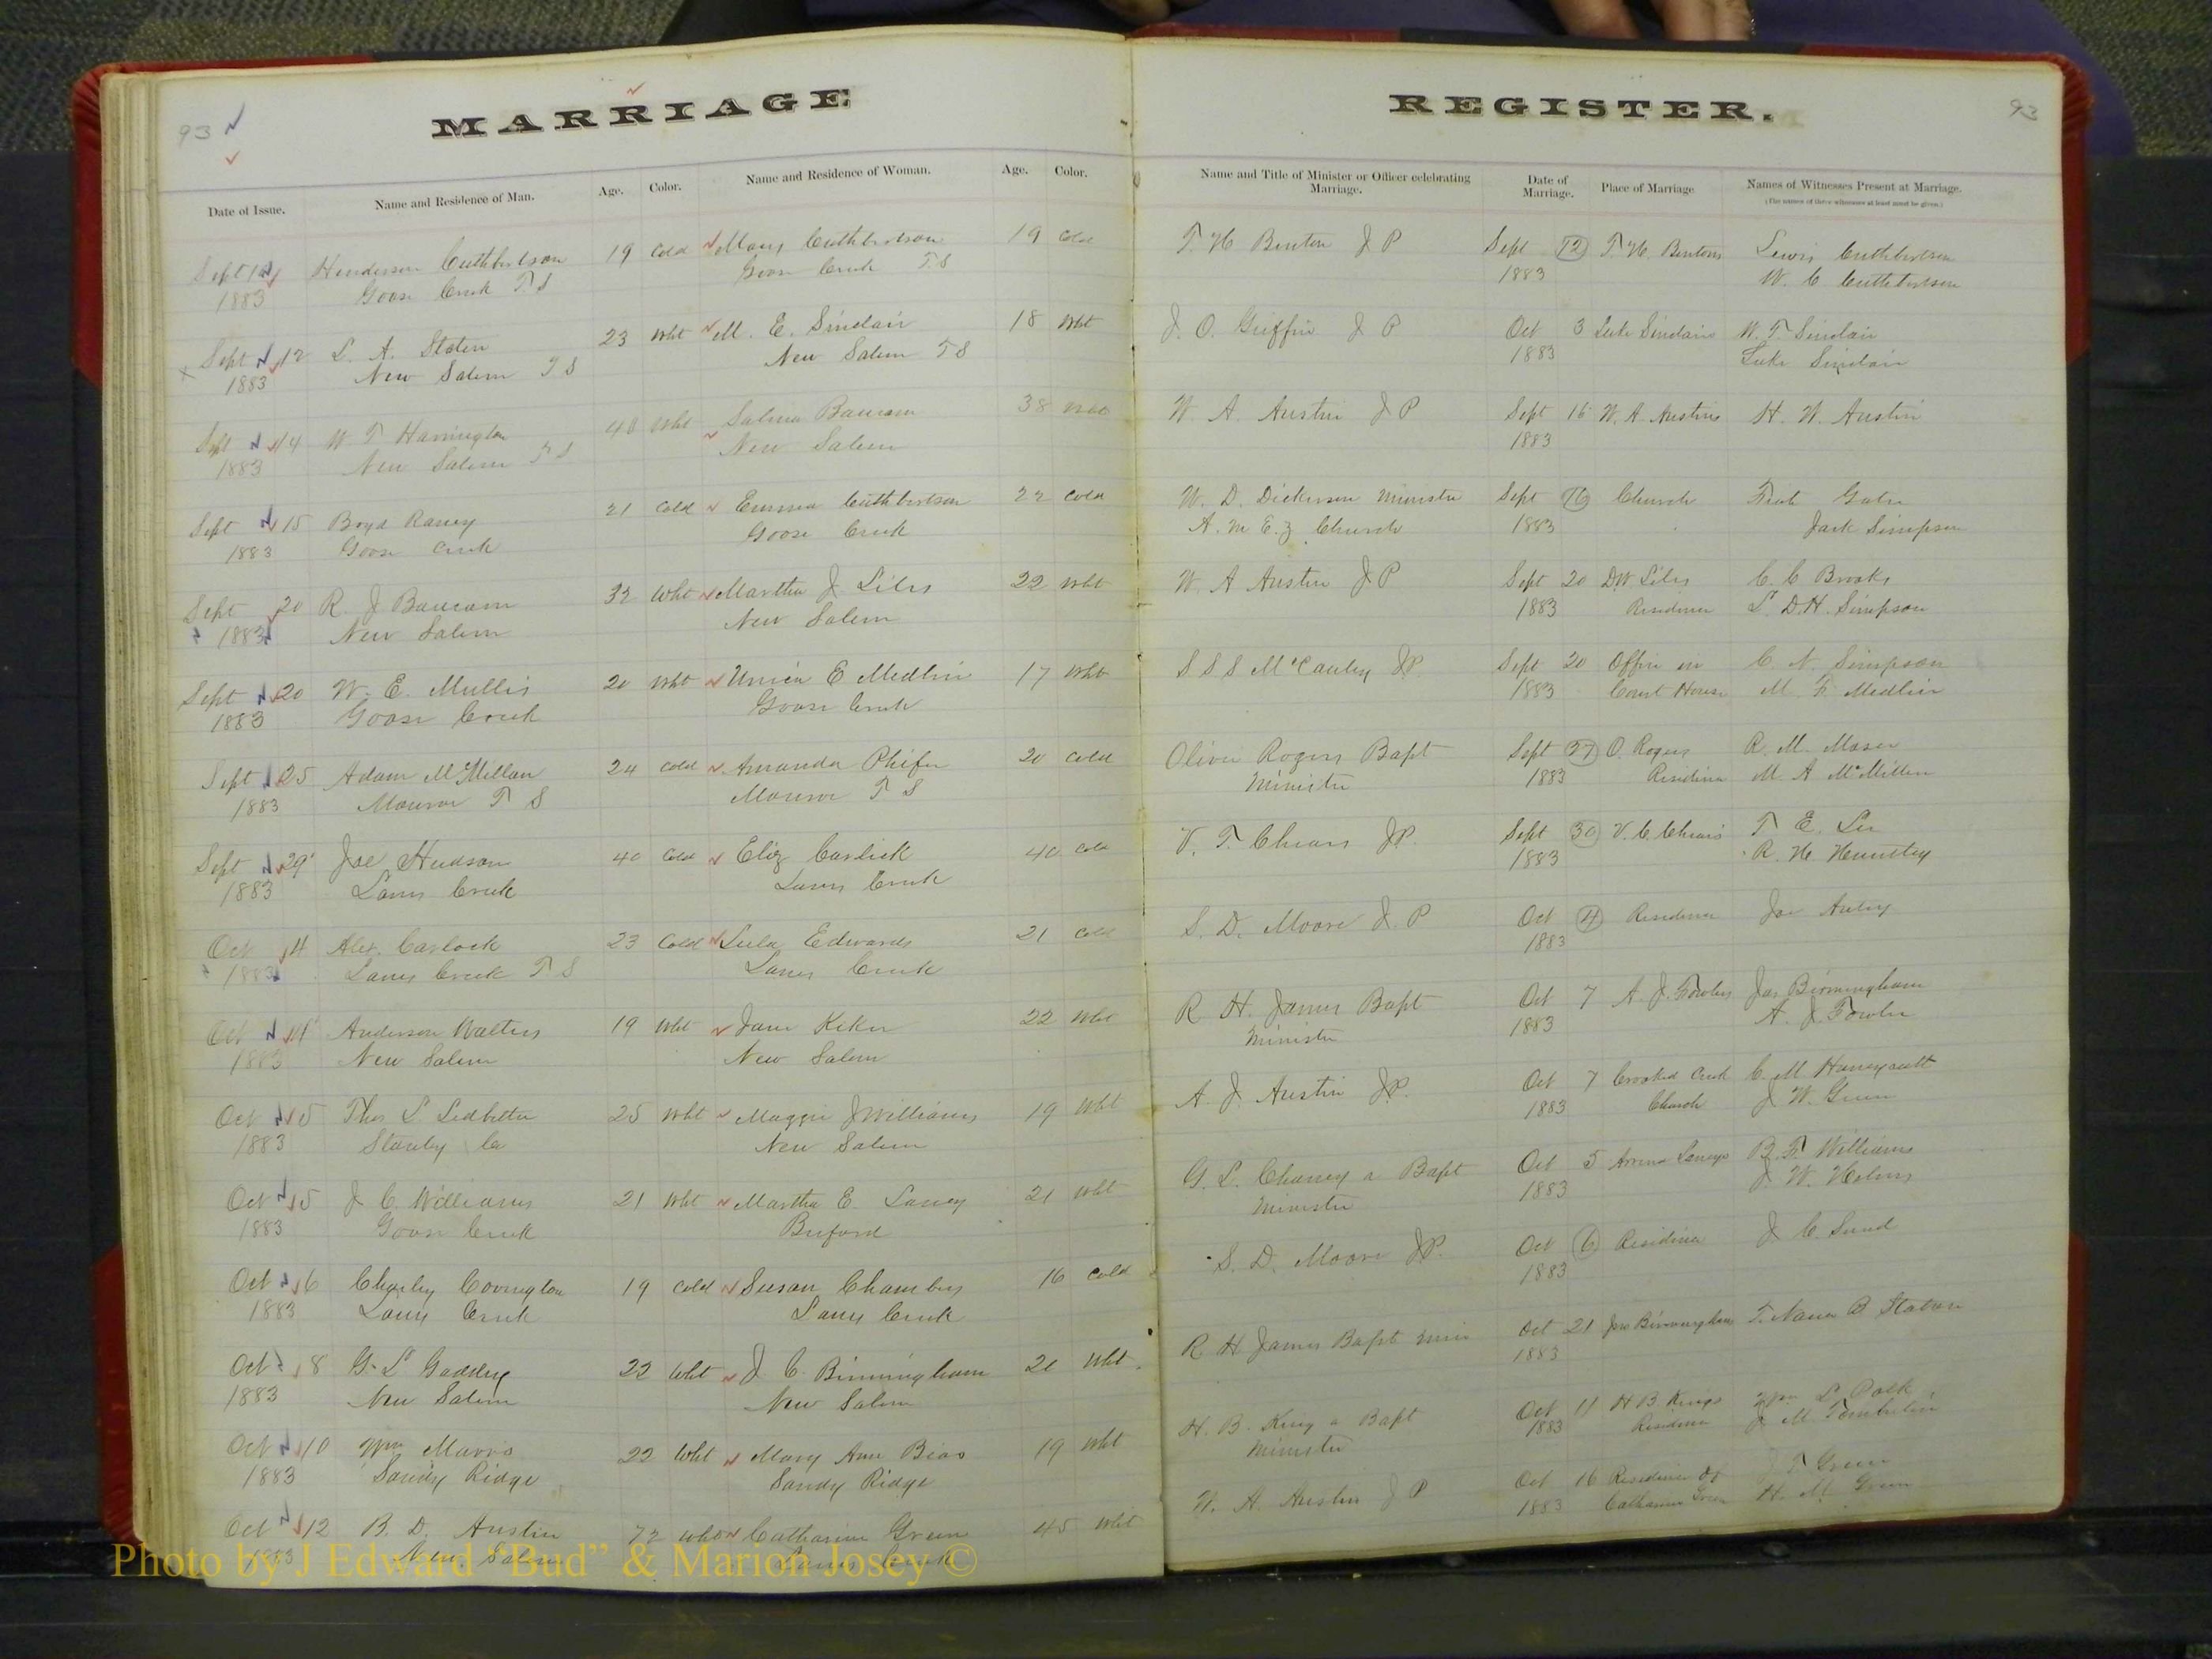 93
MARRIAGE
REGISTER.
93
Date of Issue. Name and Residence of Man. Age. Color. Name and Residence of Woman. Age. Color. Name and Title of Minister or Officer celebrating Marriage. Date of Marriage. Place of Marriage Names of Witnesses Present at Marriage.
(The names of three witnesses at least must be given.)
Sept Henderson Cuthbertson 19 Cold Mary Cuthbertson 19 Cold T. H. Benton J P Sept 12 T. H. Bentons Lewis Cuthbertson
1883 Goose Creek T. S Goose Creek T. S 1883 W. C Cuthbertson
Sept 12 L. A. Staten 23 Wht M. E. Sinclair 18 Wht J. O. Griffin J P Oct 3 Luke Sinclairs W. T. Sinclair
1883 New Salem T S New Salem T S 1883 Luke Sinclair
Sept 14 W T Harrington 40 Wht Salina Baucom 38 Wht W. A. Austin J P Sept 16 W. A. Austins H. W. Austin
1883 New Salem T S New Salem 1883
Sept 15 Boyd Raney 21 Cold Emma Cuthbertson 22 Cold W. D. Dickerson Minister Sept 16 Church
1883 Goose Creek Goose Creek A. M E. Z Church 1883 Jack Simpson
Sept 20 R. J Baucom 32 Wht Martha J. Liles 22 Wht W. A Austin J P Sept 20 D.W Liles C. C Brooks
1883 New Salem New Salem 1883 Residence L. D. H. Simpson
Sept 20 W. E. Mullis 20 Wht E Medlin 17 Wht S S S McCauley J.P. Sept 20 Office in C. N. Simpson
1883 Goose Creek Goose Creek 1883 Court House M. F. Medlin
Sept 25 Adam McMillan 24 Cold Amanda Phifer 20 Cold Oliver Rogers Bapt Sept 27 O. Rogers R. M. Moser
1883 Monroe T S Monroe T S Minister 1883 Residence M. A McMillen
Sept 29 Joe Hudson 40 Cold Eliz Carlick 40 Cold V. T. Chears J.P. Sept 30 V. C. Chears T E. Lee
1883 Lanes Creek Lanes Creek 1883 R. H. Huntley
Oct 4 Alex. Carlock 23 Cold Lula Edwards 21 Cold S. D. Moore J. P Oct 4 Residence Joe Autry
1883 Lanes Creek T. S Lanes Creek 1883
Oct Anderson Walters 19 Wht Jane Kiker 22 Wht R H. James Bapt Oct 7 A. J. Fowlers Jas Birmingham
1883 New Salem New Salem Minister 1883 A. J Fowler
Oct 5 Thos L. Ledbetter 25 Wht Maggie J Williams 19 Wht A. J. Austin J.P. Oct 7 Crooked Creek C. M Honeycutt
1883 Stanley Co New Salem 1883 Church J W. Green
Oct 5 J C. Williams 21 Wht Martha E. Laney 21 Wht G. L. Chaney a Bapt Oct 5 Laneys B. F. Williams
1883 Goose Creek Buford Minister 1883 J W. Helms
Oct 6 Charley Covington 19 Cold Susan Chambers 16 Cold S. D. Moore J.P. Oct 6 Residence J C.
1883 Lanes Creek Lanes Creek 1883
Oct 8 G. L Gaddy 22 Wht J C. Birmingham 20 Wht R H James Bapt Min Oct 21 Jas Birmingham T.
1883 New Salem New Salem 1883
Oct 10 Wm Marris 22 Wht Mary Ann Bias 19 Wht H. B. King a Bapt Oct 11 H B Kings Wm L Polk
1883 Sandy Ridge Sandy Ridge Minister 1883 Residence J M Tomberlin
Oct 12 B. D. Austin 72 Wht Catharine Green 45 Wht W. A. Austin J P Oct 16 Residence of J T Green
1883 New Salem Lanes Creek 1883 Catharine Green H. M. Green
Photo by J Edward “Bud” & Marion Josey ©